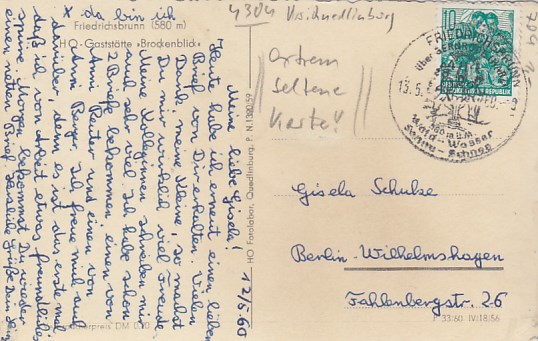 * da bin ich
Friedrichsbrunn (580 m)
HO-Gaststätte »Brockenblick«
4304 Visikuedlinburg
Extrem
Seltene
Karte!!
10
FRIEDRICHSBRUNN
über BERNBURG
13.5.
580 m ü.M.
Wald - Wasser
Schnee
12/5.60
Meine liebe Gisela!
Heute habe ich erneut einen lieben
Brief von Dir erhalten. Vielen
Dank meine Kleine, so machst
Du mir wirklich viel Freude.
Meine Kolleginnen schreiben mir
auch sehr viel. Ich habe schon
2 Briefe bekommen einen von
Anni Reuter und einen von
Anni Berger. Ich freue mich auch
darüber, denn es ist das erste mal *
daß ich von Arbeit etwas freundliches
spüre. Morgen bekommst Du wieder
einen netten Brief. Herzliche Grüße Dein
HO Fotolabor, Quedlinburg. P. N. 130/59
Gisela Schulze
Berlin-Wilhelmshagen
Fahlenbergstr. 26
DM 0,20
P 33/60 IV/18/56